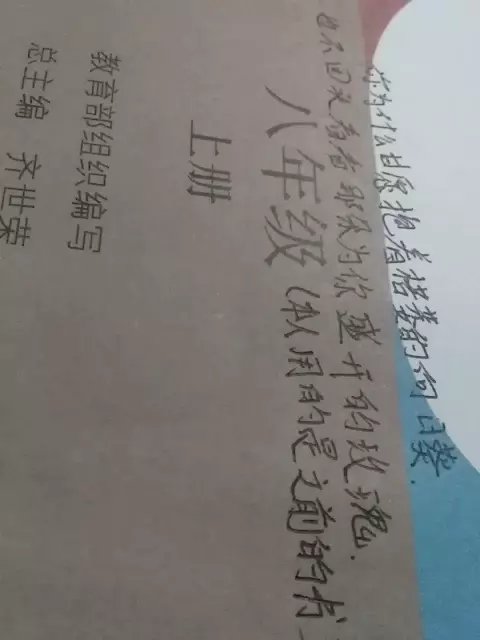 你为什么甘愿抱着枯萎的向日葵.
也不回头看看那为你盛开的玫瑰.
八年级 (本人用的是之前的书
上册
教育部组织编写
总主编 齐世荣